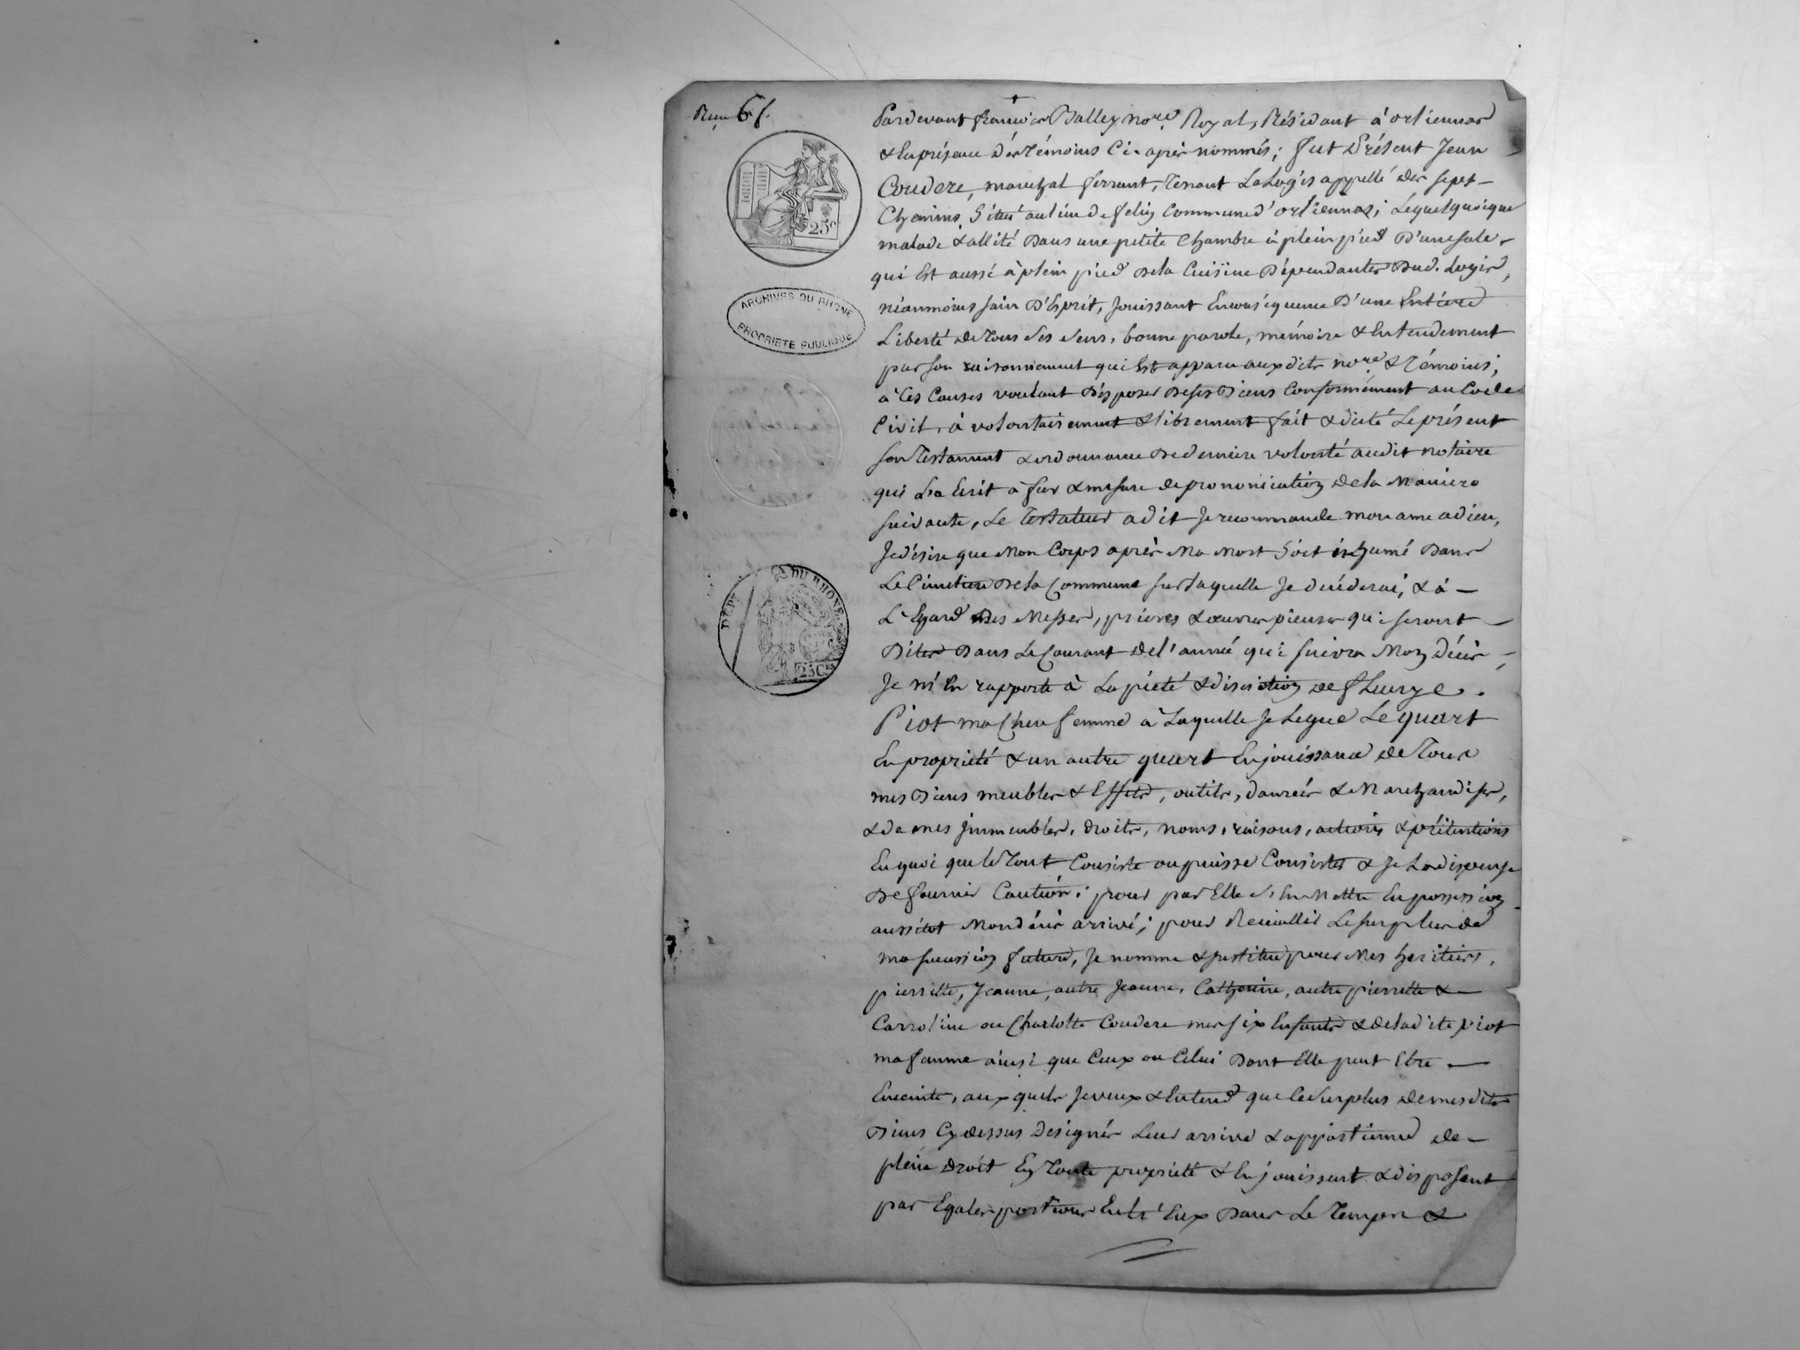 Reçu 6 f.
25c
ARCHIVES DU RHONE
PROPRIÉTÉ PUBLIQUE
DÉPt DU RHONE
25Ces
Pardevant françois Balley nore. Royal, Résidant à orliennas
& En présence des Témoins Ci-après nommés; fut Présent Jean
Coudere, marechal ferrant, Tenant Le Logis appellé des sept
Chemins, Situé au lieu de felin Commune d'orliennas; Lequel quoique
malade & allité Dans une petite Chambre à plein pied D'une sale
qui Est aussi à plein pied De la Cuisine Dépendantes Dud. Logis,
néanmoins sain D'Esprit, Jouissant En conséquence D'une Entiere
Liberté de Tous Ses Sens, bonne parole, mémoire & Entendement
par son raisonnement qui Est apparu auxdits nore. & Témoins;
à Ces Causes voulant Disposer De ses Biens Conformément au Code
Civil, à volontairement & librement fait & dicté Le présent
son Testament & ordonnance De derniere volonté audit notaire
qui L'a Ecrit à fur & mesure de prononciation De la Maniere
suivante, Le Testateur a dit Je recommande mon ame a dieu,
Je désire que Mon Corps après Ma Mort Soit inhumé Dans
Le Cimetiere De la Commune sur laquelle Je décéderai, & à
L'Egard Des Messes, prieres & œuvres pieuses qui seront
Dites Dans Le Courant de l'année qui suivra Mon Décès,
Je m'En rapporte à La piété & discretion de
Piot ma Chere femme à Laquelle Je Legue Le quart
En propriété & un autre quart En jouissance de Tous
mes Biens meubles & Effets, outils, danrées & Marchandises,
& de mes Immeubles, droits, noms, raisons, actions & prétentions
En quoi que le Tout Consiste ou puisse Consister & Je La dispense
De fournir Caution; pour par Elle S'En Mettre En possession
aussitot Mon décès arrivé; pour Recueillir Le surplus de
ma succession future, Je nomme & Institue pour Mes heritiers,
pierrette, Jeanne, autre Jeanne, Catherine, autre pierrette &
Carroline ou Charlotte Coudere mes six Enfants & de ladite piot
ma femme ainsi que Ceux ou Celui Dont Elle peut Etre
Enceinte, auxquels Je veux & Entend que le Surplus de mesdits
Biens Cy dessus Designés Leur arrive & appartienne de
plein Droit En Toute propriété & En jouissent & disposent
par Egales portions Entr'Eux Dans Le Temps &